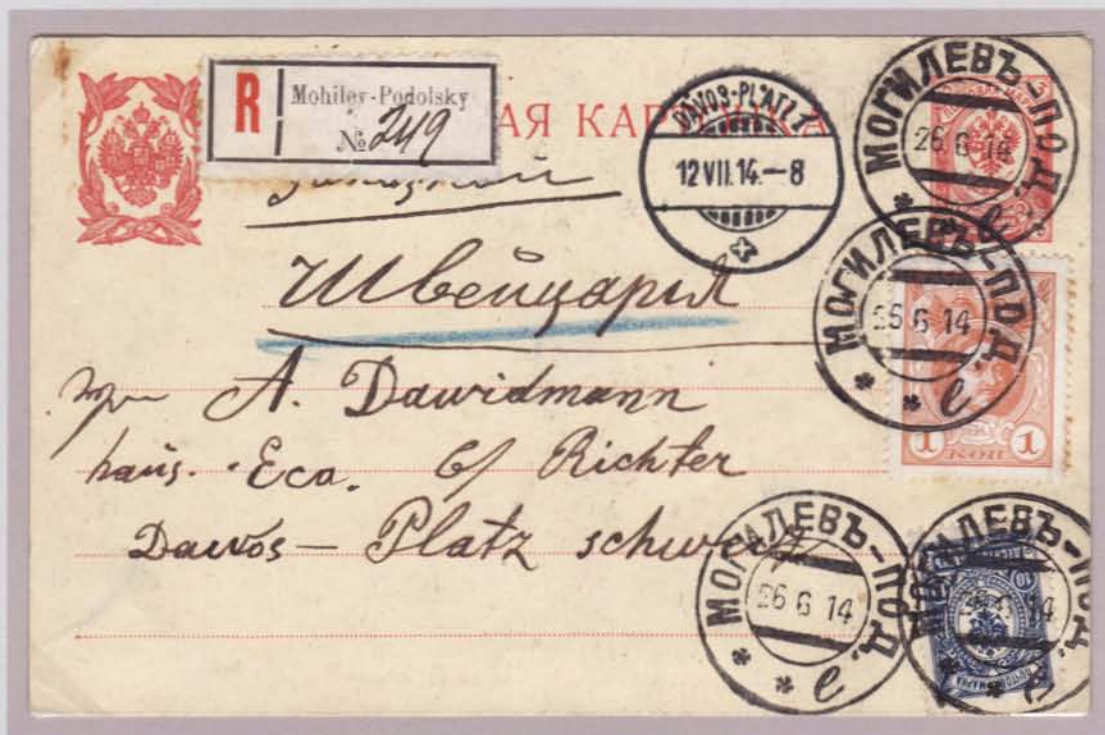 R Mohilev-Podolsky
№ 249
АЯ КАР
DAVOS-PLATZ 1
12 VII.14.–8
МОГИЛЕВЪ-ПОД.
26 6 14
е
Заказной
Швейцарья
МОГИЛЕВЪ-ПОД.
26 6 14
е
1 КОП 1
A. Dawidmann
haus. Eca. b/ Richter
Dawos — Platz schweiz
МОГИЛЕВЪ-ПОД.
26 6 14
е
МОГИЛЕВЪ-ПОД.
10